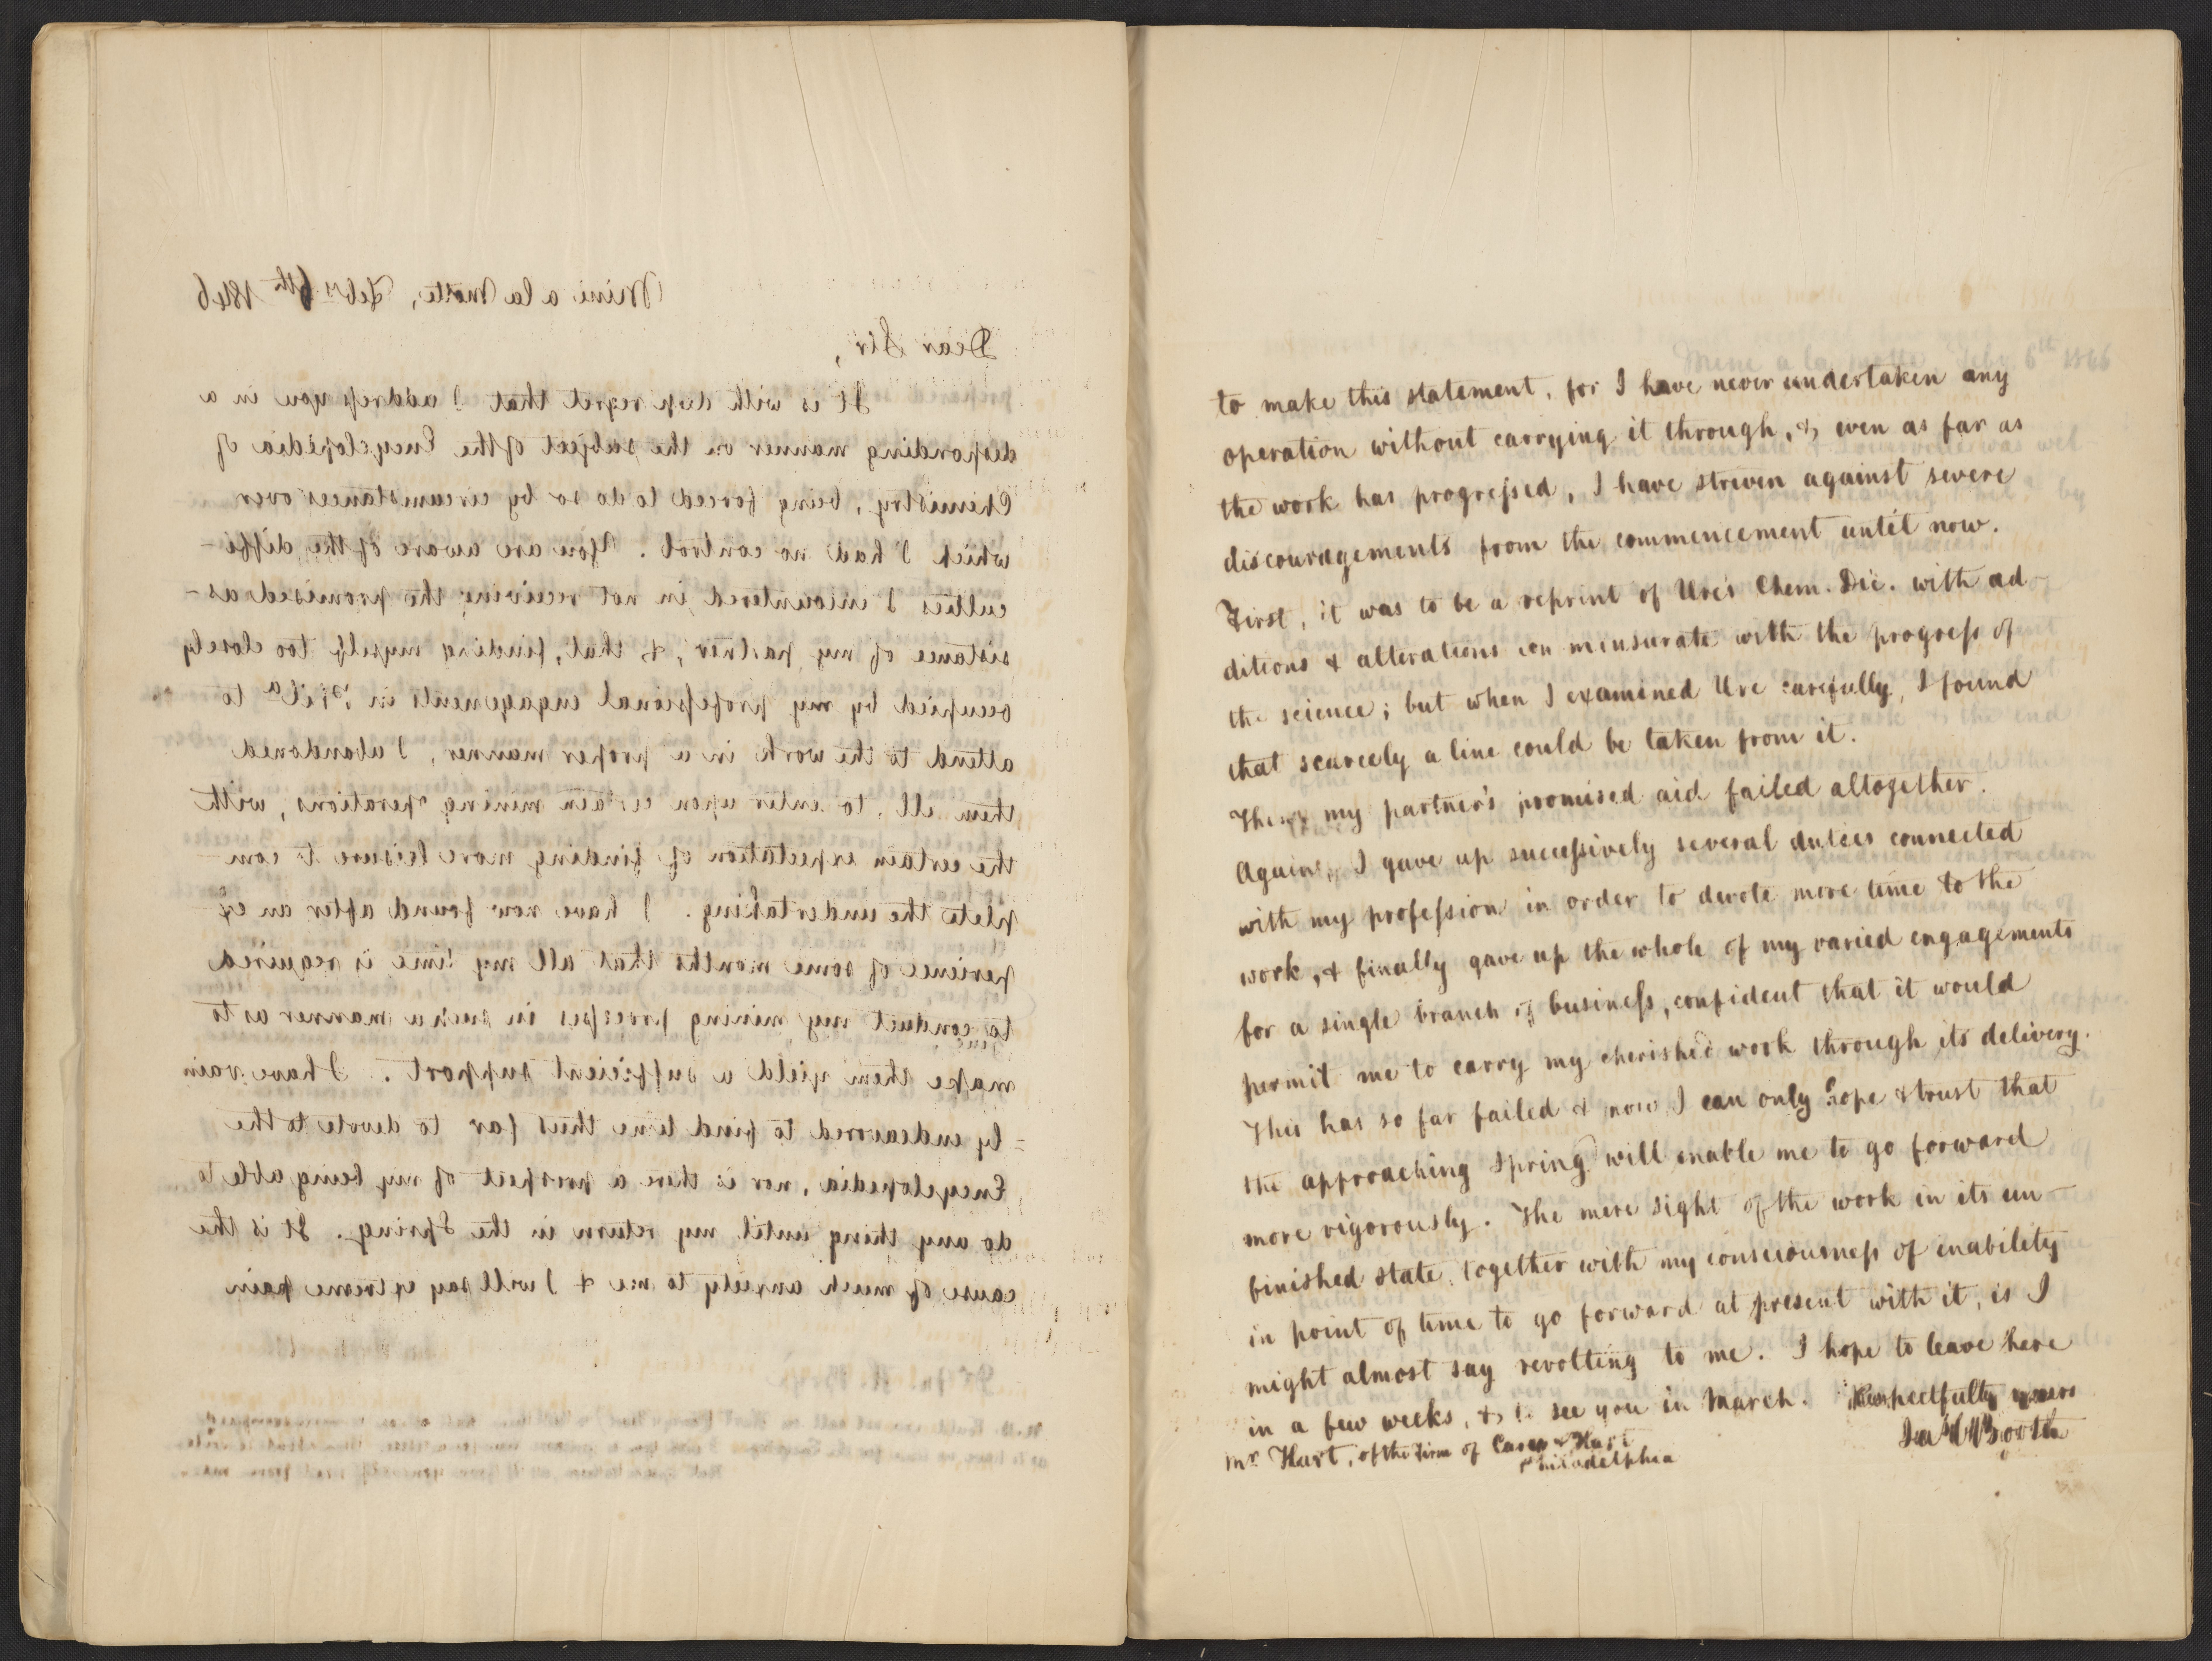 Mine a la Motte, Feby 6th 1846
Dear Sir,
It is with deep regret that I address you in a
desponding manner on the subject of the Encyclopedia of
Chemistry, being forced to do so by circumstances over
which I had no control. You are aware of the diffi-
culties I encountered in not receiving the promised as-
sistance of my partner, & that, finding myself too closely
occupied by my professional engagements in Phila to
attend to the work in a proper manner, I abandoned
them all, to enter upon certain mining operations, with
the certain expectation of finding more leisure to com
plete the undertaking. I have now found after an ex
perience of some months that all my time is required
to conduct my mining processes in such a manner as to
make them yield a sufficient support. I have vain
=ly endeavored to find time thus far to devote to the
Encyclopedia, nor is there a prospect of my being able to
do any thing until my return in the Spring. It is the
cause of much anxiety to me & I will say extreme pain
to make this statement, for I have never undertaken any
operation without carrying it through, & even as far as
the work has progressed, I have striven against severe
discouragements from the commencement until now.
First, it was to be a reprint of Ure's Chem. Dic. with ad-
ditions & alterations con mensurate with the progress of
the science; but when I examined Ure carefully, I found
that scarcely a line could be taken from it.
Then my partner's promised aid failed altogether.
Again, I gave up successively several duties connected
with my profession in order to devote more time to the
work, & finally gave up the whole of my varied engagements
for a single branch of business, confident that it would
permit me to carry my cherished work through its delivery.
This has so far failed & now I can only hope & trust that
the approaching Spring will enable me to go forward
more vigorously. The mere sight of the work in its un-
finished state, together with my consciousness of inability
in point of time to go forward at present with it, is I
might almost say revolting to me. I hope to leave here
in a few weeks, & to see you in March. Respectfully yours
Jas C Booth
Mr Hart, of the firm of Carey & Hart
Philadelphia